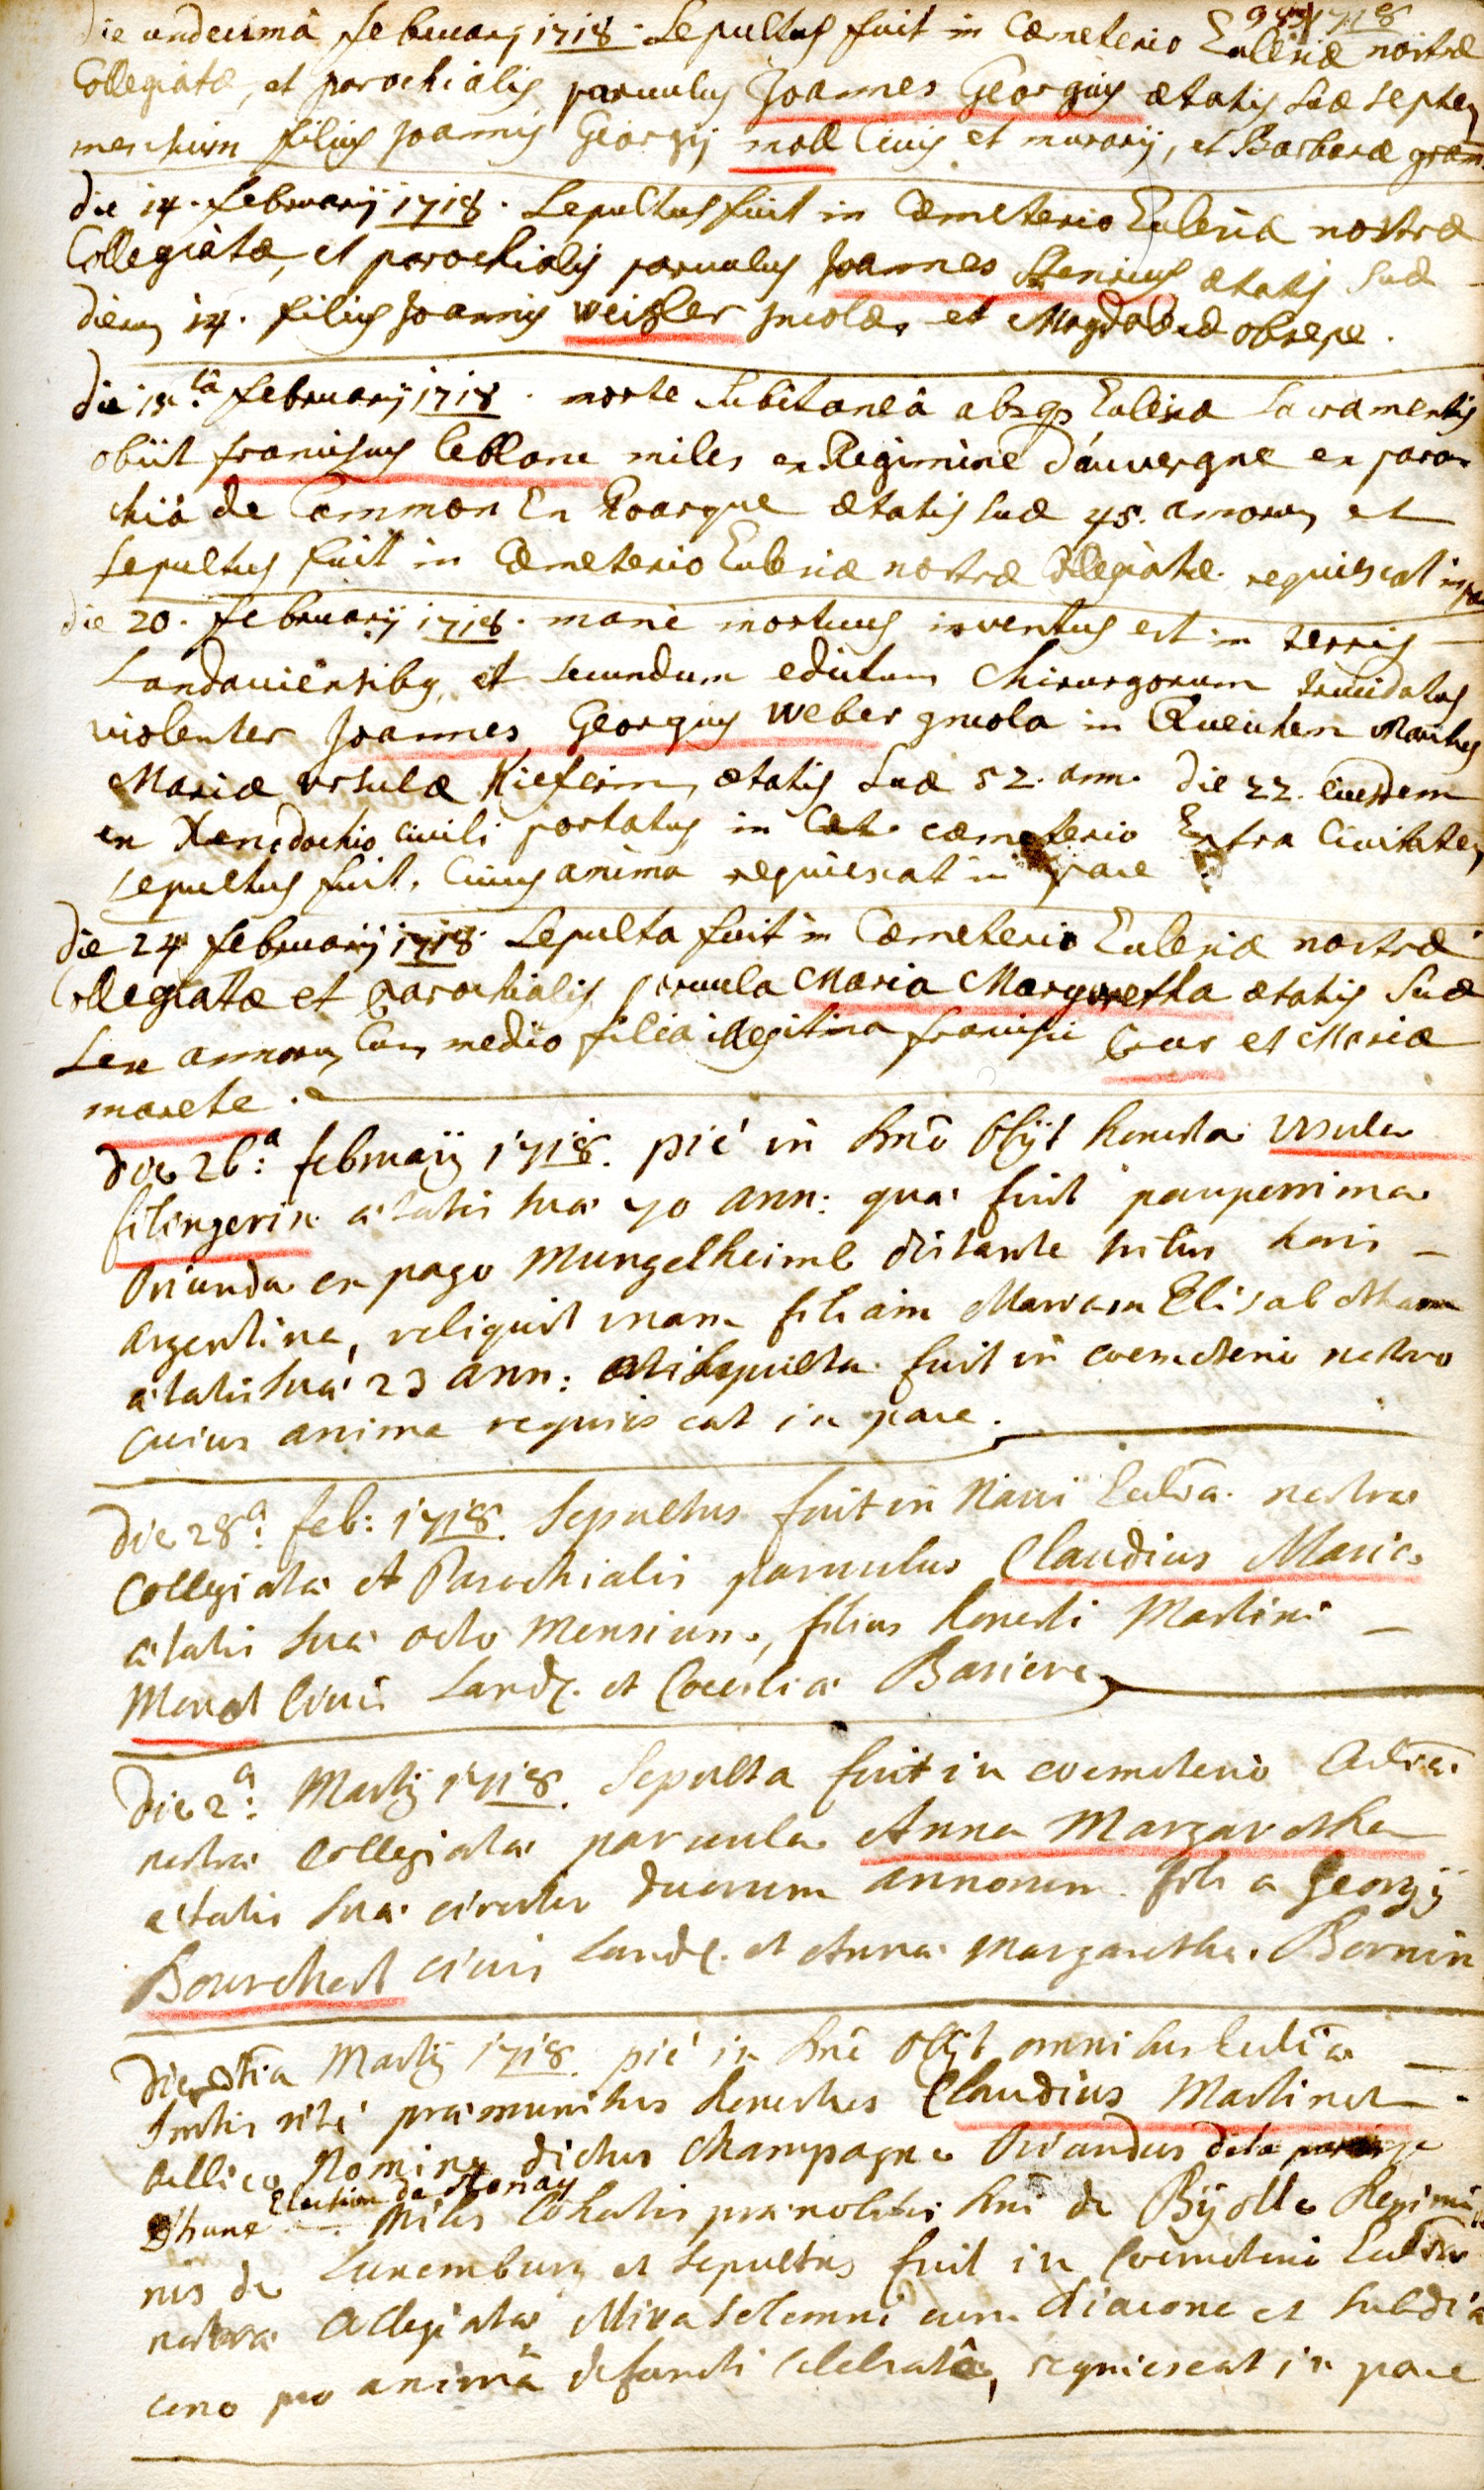 983/1718
die undecimâ february 1718. Sepultus fuit in Cæmeterio Ecclesiæ nostræ
Collegiatæ, et parochialis paruulus Joannes Georgius ætatis suæ septem
mensium filius Joannis Georgij moll Ciuis et murarij, et Barbaræ
die 14. februarij 1718. Sepultus fuit in Cæmeterio Ecclesiæ nostræ
Collegiatæ, et parochialis paruulus Joannes ætatis suæ
dierum 14. filius Joannis weisler Incolæ, et Magdalenæ obsepe.
die 15.ta februarij 1718. morte subitaneâ absqz Ecclesiæ Sacramentis
obiit franciscus leblanc miles ex Regimine d'auvergne ex paro-
chiâ de Cammon En Roargue ætatis suæ 45. annorum et
sepultus fuit in Cæmeterio Ecclesiæ nostræ Collegiatæ. requiescat in pa
die 20. februarij 1718. mane mortuus inventus est in terris
Landauiensibus, et secundum edictum Chirurgorum trucidatus
violenter Joannes Georgius Weber Incola in Queichen Maritus
Mariæ ursulæ Kieferin, ætatis suæ 52. ann. die 22. eiusdem
ex Xenodochio Ciuili portatus in cæmeterio Extra Ciuitatem
sepultus fuit, Cuius anima requiescat in pace
die 24 februarij 1718. Sepulta fuit in Cæmeterio Ecclesiæ nostræ
Collegiatæ et Parochialis paruula Maria Margaretha ætatis suæ
sex annorum Cum medio filia illegitima francisci et Mariæ
marete.
die 26:a februarij 1718. piè in dnõ obijt honesta Ursula
filingerin ætatis suæ 70 ann: quæ fuit pauperrima
oriunda ex pago Mungelheimb distante situs horis
Argentina, reliquit unam filiam Mariam Elisabetham
ætatis suæ 23 ann: sepulta fuit in coemeterio nostro
cuius anima requiescat in pace.
die 28:a feb: 1718. Sepultus fuit in Naui Eccles̃iæ nostræ
Collegiatæ et Parochialis paruulus Claudius Maria
ætatis suæ octo Mensium, filius honesti Martini
Monet Ciuis Land. et Coecilia Bariere
die 2:a Martij 1718. Sepulta fuit in coemeterio Eccl̃iæ
nostræ Collegiatæ paruula Anna Margaretha
ætatis suæ circiter duorum annorum. filia Georgij
Bourchart ciuis Land. et Annæ Margarethæ Bornin
die Martij 1718. piè in dnõ obijt omnibus Eccl̃iæ
Sr̃tis ritè præmunitus honestus Claudius Martinet
bellico Nomine dictus Champagne Oriundus de la
Election de Stenay
d'hune Miles Cohortis prænobilis dñi de Byolle Regimi
nis de Luxemburg et sepultus fuit in Coemeterio Eccl̃iæ
nostræ Collegiatæ Missa solemni cum diacono et subdia
cono pro animâ defuncti celebratâ, requiescat in pace